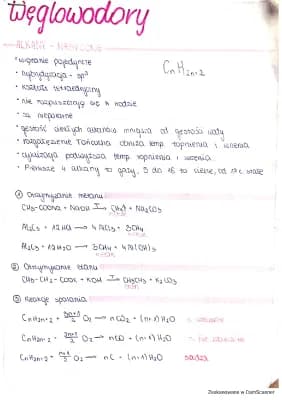 Węglowodory
ALKANY - NASYCONE
• wiązanie pojedyncze
CnH2n+2
• hybrydyzacja - sp³
• kształt tetraedryczny
• nie rozpuszczają się w wodzie
• są niepolarne
• gęstość ciekłych alkanów mniejsza od gęstości wody
• rozgałęzienie łańcucha obniża temp. topnienia i wrzenia
• cyklizacja podwyższa temp. topnienia i wrzenia
• Pierwsze 4 alkany to gazy, 5 do 16 to ciecze, od 17 c. stałe
① Otrzymywanie metanu
CH3-COONa + NaOH → CH4 + Na2CO3
Al4C3 + 12HCl → 4AlCl3 + 3CH4
Al4C3 + 12H2O → 3CH4 + 4Al(OH)3
② Otrzymywanie etanu
CH3-CH2-COOK + KOH → CH3CH3 + K2CO3
③ Reakcje spalania
CnH2n+2 + 3n+1/2 O2 → nCO2 + (n+1)H2O
CnH2n+2 + 2n+1/2 O2 → nCO + (n+1)H2O
CnH2n+2 + n+1/2 O2 → nC + (n+1)H2O sadza
Zeskanowane w CamScanner